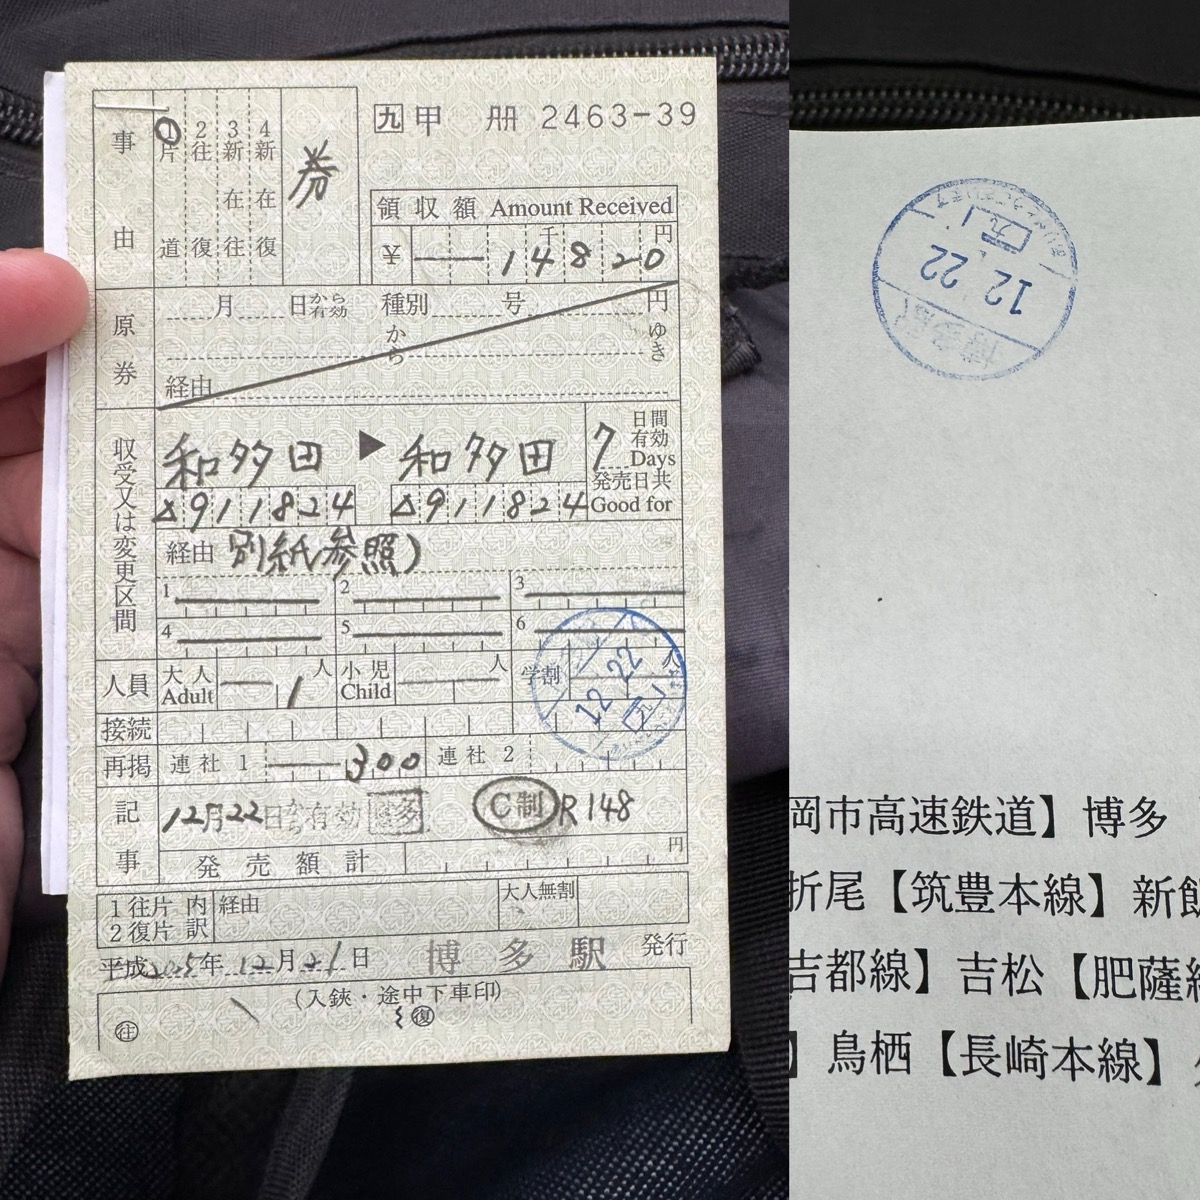 九 甲 册 2463-39
事由
1片道
2往復
3新在往
4新在復
券
領収額 Amount Received
千 円
¥ 14820
原券
月 日から有効 種別 号 円
から ゆき
経由
収受又は変更区間
和多田 ▶ 和多田
△911824 △911824
7 日間有効 Days
発売日共 Good for
経由 別紙参照)
1 2 3
4 5 6
人員 大人 Adult 1 人 小児 Child 人 学割 人
12.22
接続
再掲 連社1 300 連社2
記事
12月22日から有効 博多 C制 R148
発売額計 円
1往片 内訳 経由 大人無割
2復片
平成2025年12月21日 博多駅 発行
(入鋏・途中下車印)
往 復
博多駅
12.22
岡市高速鉄道】博多
折尾【筑豊本線】新飯
吉都線】吉松【肥薩線
】鳥栖【長崎本線】